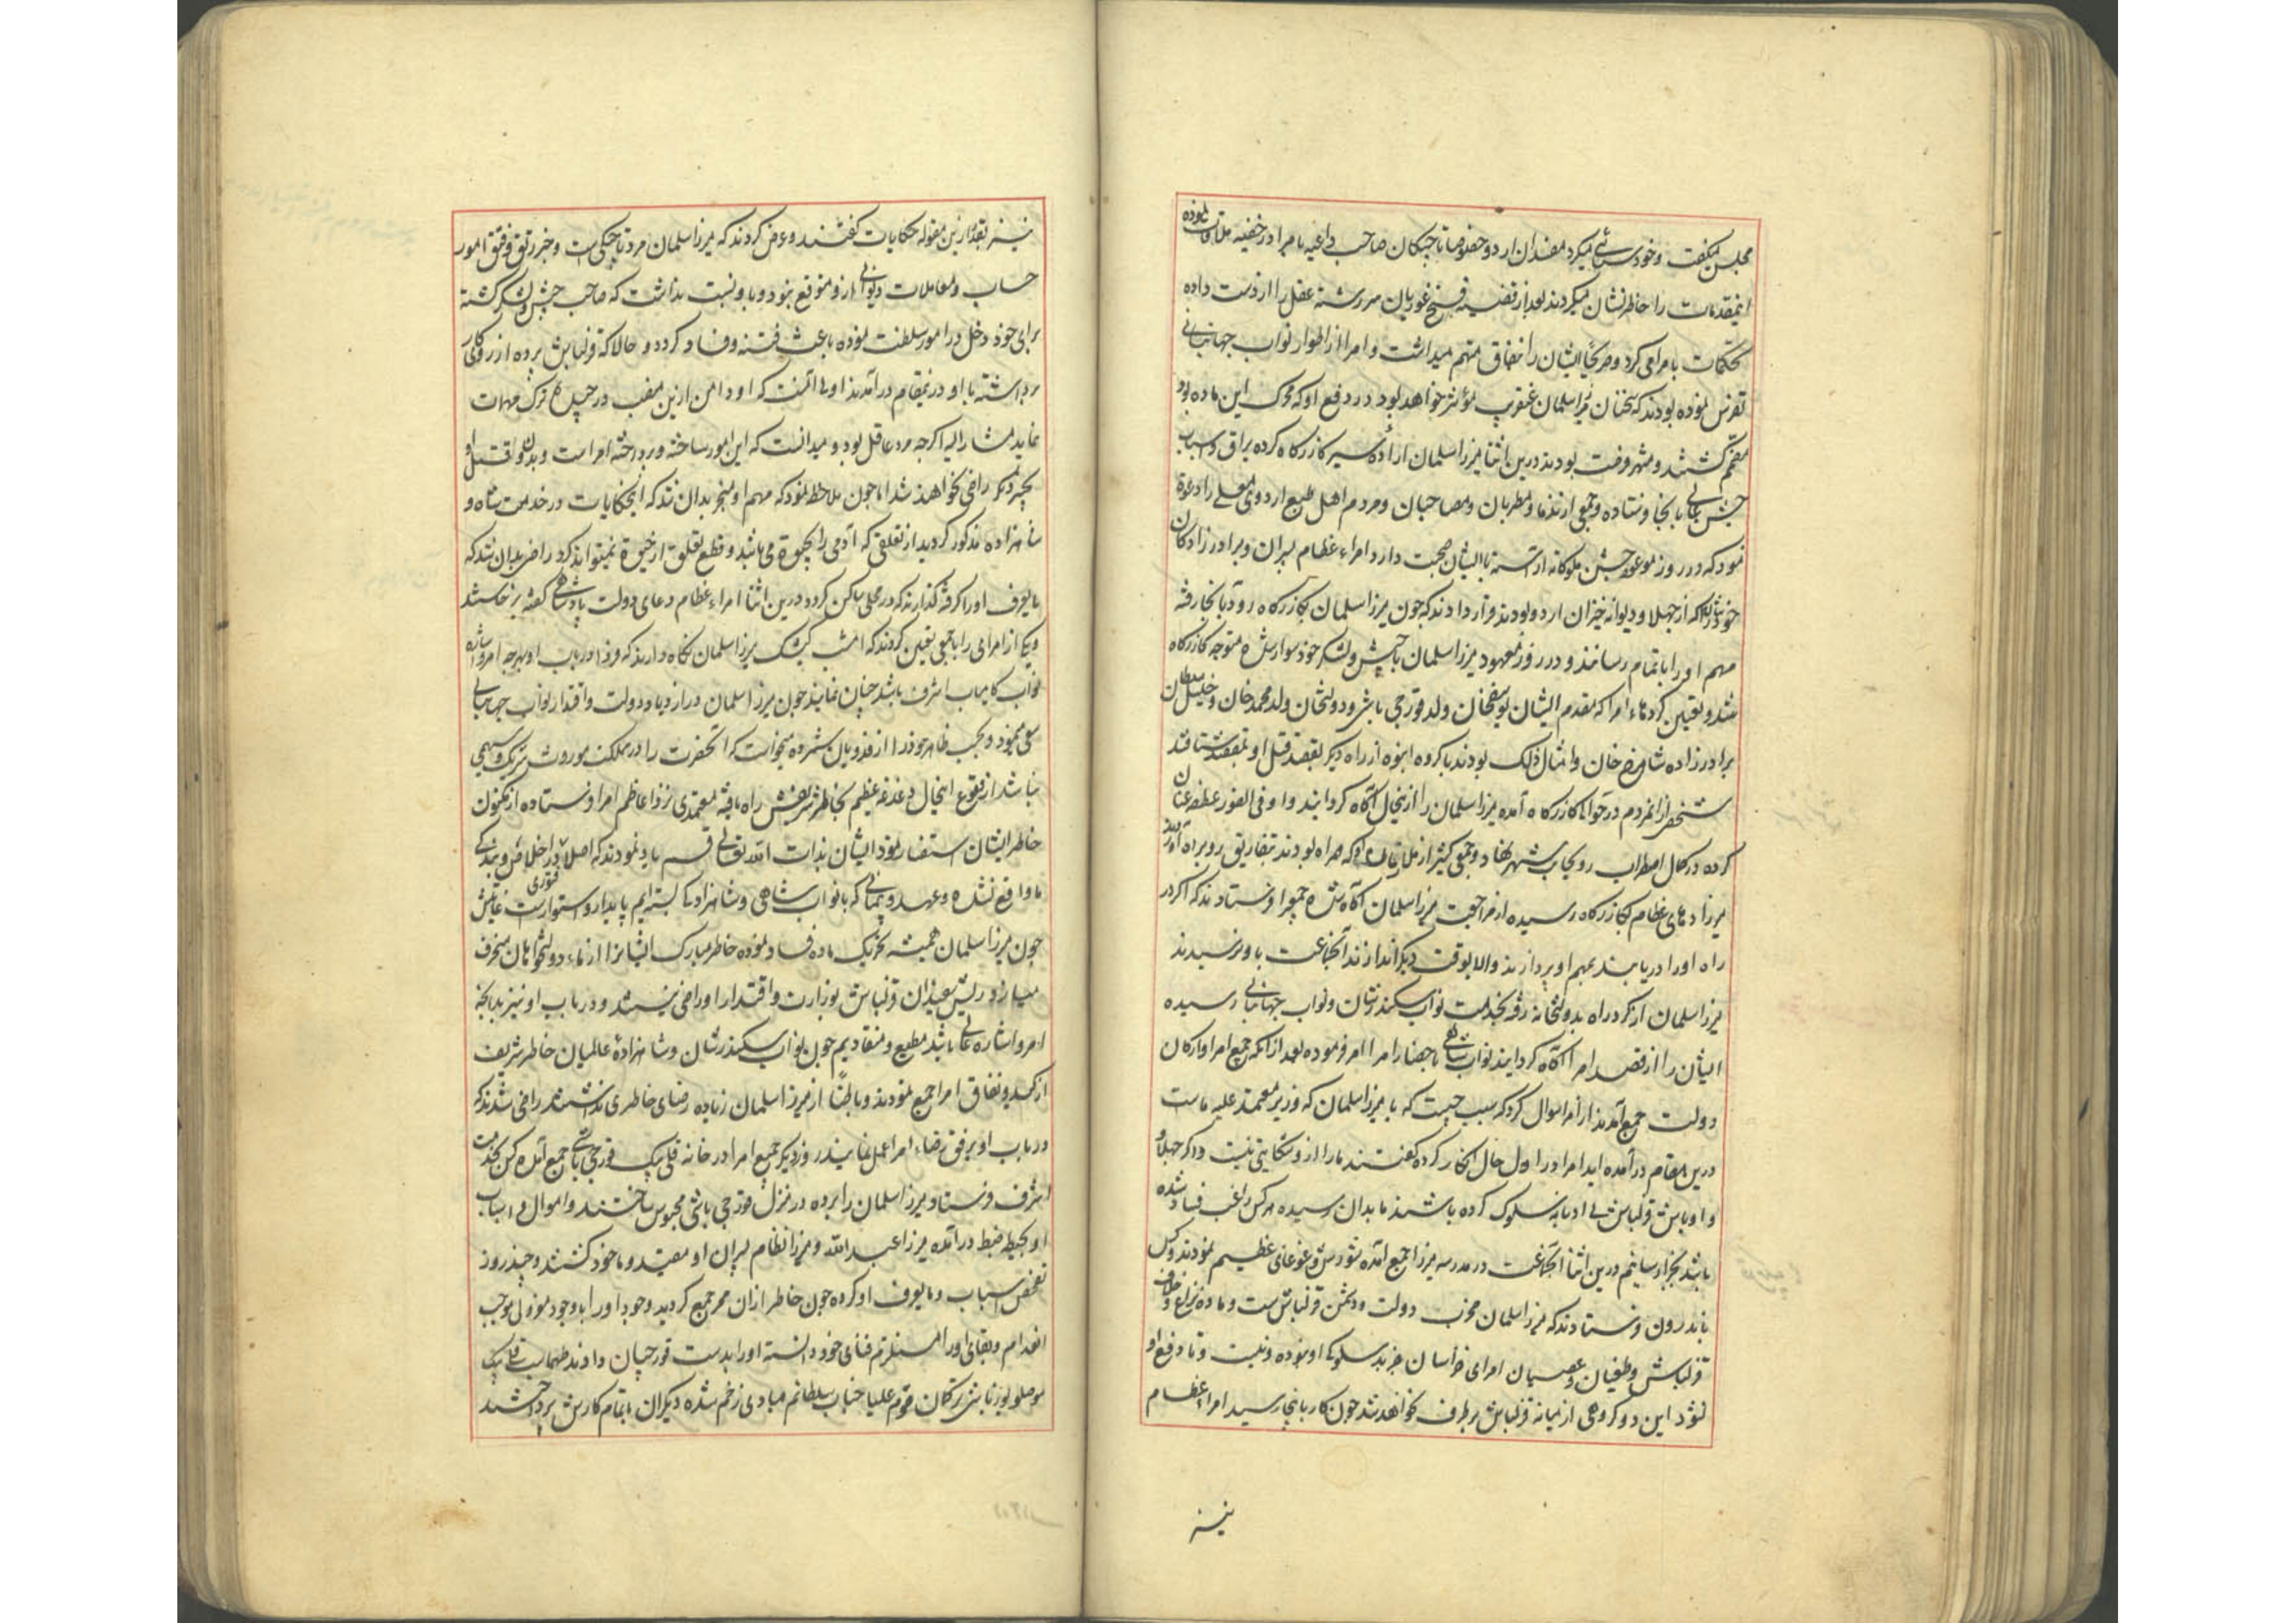 مجلس میکفت و خودستائی میکرد مفسدان اردو خصوصا تاجیکان صاحب داعیه با امرا در خفیه ملاقات نموده
اینمقدمات را خاطرنشان میکردند بعد از قضیه فتح غوریان سررشته عقل را از دست داده
تحکمات بامرا می کرد و صریحا ایشان را بنفاق متهم میداشت و امرا از اطوار نواب جهانبانی
تفرس نموده بودند که سخنان میرزا سلمان عنقریب مؤثر خواهد بود در دفع او که محرک این ماده بود
مصمم کشتند و منتهز وقت بودند درین اثنا میرزا سلمان اراده سیر کازرکاه کرده یراق و اسباب
جشن عالی بانجا فرستاده و جمعی از ندما و مطربان و مصاحبان و مردم اهل طبع اردوی معلی را دعوة
نمود که در روز موعود جشن ملوکانه آراسته با ایشان صحبت دارد امراء عظام پسران و برادر زادکان
خود را که از جهلا و دیوانه خیزان اردو بودند قرار دادند که چون میرزا سلمان بکازرکاه رود بآنجا رفته
مهم او را باتمام رسانند و در روز معهود میرزا سلمان با جیش و لشکر خود سوار شده متوجه کازرکاه
شد و تعیین کرده‌اء امرا که مقدم ایشان یوسفخان ولد قورچی باشی و دولتخان ولد محمد خان و خلیل سلطان
برادر زاده شاهرخ خان و امثال ذلک بودند با کروه انبوه از راه دیکر بقصد قتل او شتافتند
شخصی از انمردم در حوالی کازرکاه آمده میرزا سلمان را از ینحال آکاه کردانید و او فی الفور عطف عنان
کرده در کمال اضطراب رو بجانب شهر نهاد و جمعی کثیر از ملازمان او که همراه بودند بتفاریق رو براه آوردند
میرزاده‌های عظام بکازرکاه رسیده از مراجعت میرزا سلمان آکاه شده جمعی را فرستادند که اکر در
راه او را دریابند بمهم او پردازند والا بوقت دیکر اندازند آنجماعت باو نرسیدند
میرزا سلمان از کرد راه بدولتخانه رفته بخدمت نواب سکندر شان و نواب جهانبانی رسیده
ایشان را از قصد امرا آکاه کردانید نواب شاهی باحضار امرا امر فرموده بعد از آنکه جمیع امرا و ارکان
دولت جمع آمدند از امرا سوال کرد که سبب چیست که با میرزا سلمان که وزیر معتمد علیه ماست
درین مقام درآمده اید امرا در اول حال انکار کرده کفتند ما را از و شکایتی نیست و اکر جهلا و
و اوباش قزلباش بی ادبانه سلوک کرده باشند ما بدان نرسیده هر کس باعث فساد شده
باشد بجزا رسانیم درین اثنا آنجماعت در مدرسه میرزا جمع آمده شورش و غوغای عظیم نمودند و کس
باندرون فرستادند که میرزا سلمان مخرب دولت و دشمن قزلباش ست و ماده نزاع و خلاف
قزلباش و طغیان و عصیان امرای خراسان جز بد سلوکی او نبوده و نیست و تا دفع او
نشود این دو کروهی از میانه قزلباش بر طرف نخواهد شد چون کار باینجا رسید امراء عظام
نیز
نیز بقدر ازین مقوله حکایات کفتند و عرض کردند که میرزا سلمان مرد تاجیکی است و جز رتق و فتق امور
حساب و معاملات دیوانی ازو متوقع نبود و باو نسبت نداشت که صاحب جیش و لشکر کشته
برای خود دخل در امور سلطنت نموده باعث فتنه و فساد کردد و حالا که قزلباش پرده از روی کار
برداشته با او درینمقام درآمدند اولی آنست که او دامن ازین منصب درچیده ترک مهمات
نماید مشار الیه اکرچه مرد عاقل بود و میدانست که این امور ساخته و پرداخته امرا ست و بدون قتل او
بچیز دیکر راضی نخواهند شد اما چون ملاحظه نمود که مهم او منجر بدان شد که اینحکایات در خدمت شاه و
شاهزاده مذکور کردید از تعلقی که آدمی را بحیوة می باشد و قطع تعلق از حیوة نمیتواند کرد راضی بدان شد که
مایعرف او را کرفته کذارند که در محلی ساکن کردد درین اثنا امراء عظام دعای دولت پادشاهی کفته برخاستند
و یکی از امرا را با جمعی تعیین کردند که امشب کشیک میرزا سلمان نکاه دارند که فردا در باب او بهر چه امر و اشاره
نواب کامیاب اشرف باشد چنان نمایند چون میرزا سلمان در ازدیاد دولت و اقتدار نواب جهانبانی
سعی مینمود و بحسب ظاهر خود را از فدویان شمرده میخواست که آنحضرت را در مملکت موروث شریک و سهیمی
نباشد از وقوع اینحال دغدغه عظیم بخاطر شریفش راه یافته معتمدی نزد اعاظم امرا فرستاده از مکنون
خاطر ایشان استفسار نمود ایشان بذات الله تعالی قسم یاد نمودند که اصلا در اخلاص و بندکی
ما فتوری واقع نشده و عهد و پیمانی که با نواب شاهی و شاهزاده‌ها بسته ایم پایدار و استوار ست غایتش
چون میرزا سلمان همیشه بتحریک ماده فساد نموده خاطر مبارک ایشانرا از ماء دولتخواهان منحرف
میسازد ریش سفیدان قزلباش بوزارت و اقتدار او راضی نیستند و در باب او نیز بدانچه
امر و اشاره عالی باشد مطیع و منقادیم چون نواب سکندر شان و شاهزاده عالمیان خاطر شریف
از کید و نفاق امرا جمع نمودند و باطنا از میرزا سلمان زیاده رضای خاطری نداشتند راضی شدند که
در باب او بر فق رضاء امرا عمل نمایند روز دیکر جمیع امرا در خانه قلی بیک قورچی باشی جمع آمده کس بخدمت
اشرف فرستاد و میرزا سلمان را برده در منزل قورچی باشی محبوس ساختند و اموال و اسباب
او بحیطه ضبط درآمده میرزا عبد الله و میرزا نظام پسران او مقید و ماخوذ کشتند و چند روز
تفحص اسباب و مایعرف او کرده چون خاطر ازان ممر جمع کردید وجود او را با وجود معزولی موجب
انهدام و بقای او را مستلزم فنای خود دانسته او را بدست قورچیان دادند طهماسب قلی بیک
موصلو بوزباشی ترکمان قوم علیا جناب سلطانم مبادی زخم شده دیکران باتمام کارش پرداختند